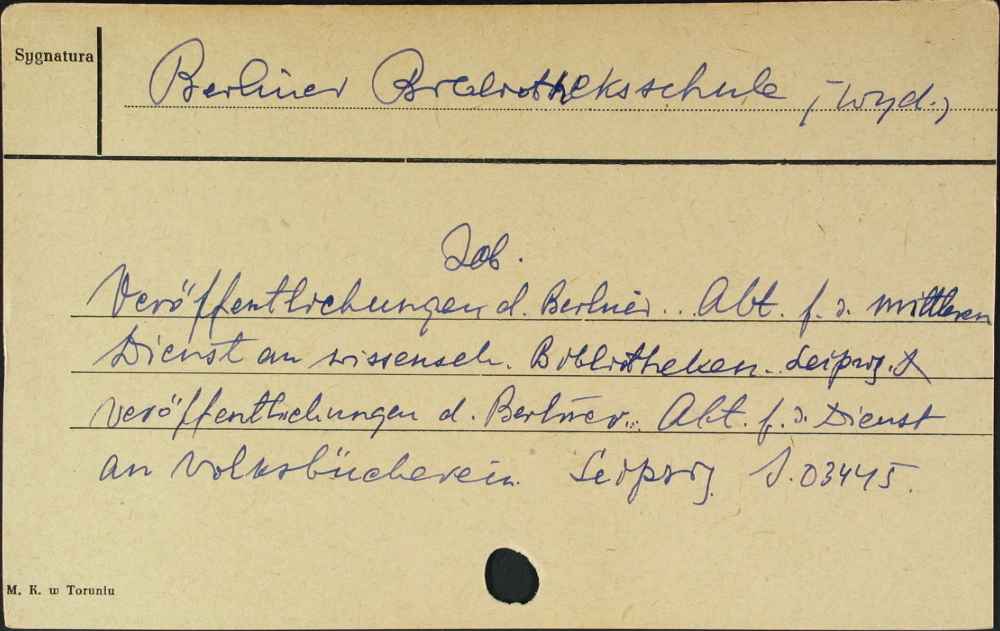 Sygnatura
Berliner Bibliotheksschule, (wyd.)
Zob.
Veröffentlichungen d. Berliner... Abt. f. d. mittleren
Dienst an wissensch. Bibliotheken. Leipzig.
Veröffentlichungen d. Berliner... Abt. f. d. Dienst
an Volksbüchereien. Leipzig J.03445.
M. K. w Toruniu